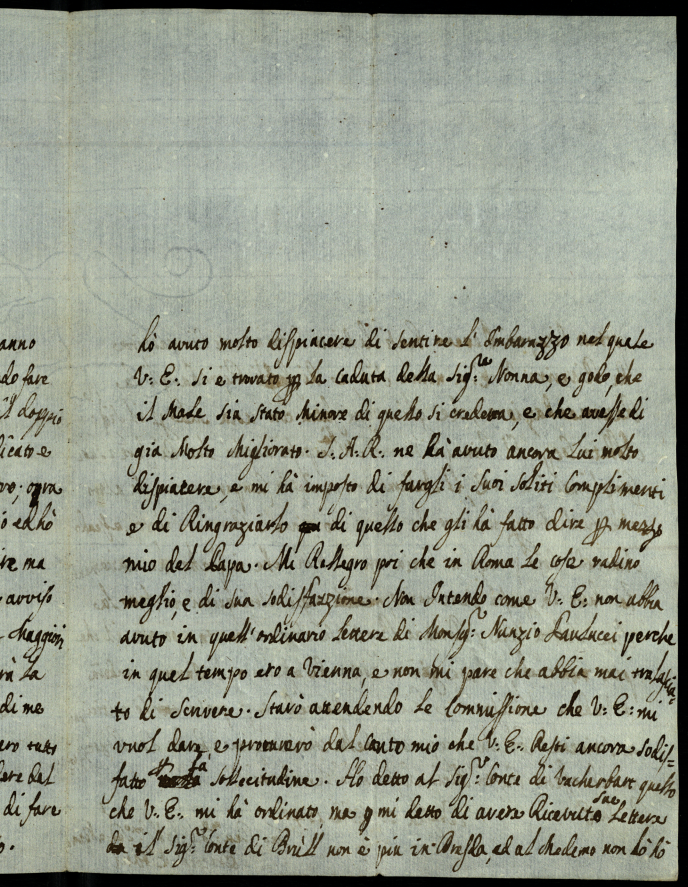 anno
do fare
il doppio
licato e
ove; ogra
o ed hò
ire ma
avviso
Maggiori
rà la
di me
ero tutto
dere dal
di fare
o.
hò avuto molto dispiacere di sentire l'Imbarazzo nel quale
V: E: si e trovato p la caduta della Sig:ra Nonna, e godo, che
il Male sia stato Minore di quello si credeva, e che avesse di
gia Molto Migliorato. S. A. R. ne hà avuto ancora Lui molto
dispiacere, e mi hà imposto di fargli i suoi soliti Complimenti
e di Ringraziarlo di quello che gli hà fatto dire p mezzo
mio dal Papa. Mi Rallegro poi che in Roma le cose vadino
meglio, e di sua sodisfazzione. Non Intendo come V: E: non abbia
avuto in quell'ordinario lettere di Monsig:r Nunzio Paulucci perche
in quel tempo ero a Vienna, e non mi pare che abbia mai tralascia
to di scrivere. Starò attendendo le Commissione che V: E: mi
vuol dare, e procurerò dal canto mio che V: E: Resti ancora sodis=
fatto sollecitudine. Ho detto al Sig:r Conte di Vacherbart quello
che V: E: mi hà ordinato, ma mi detto di avere Ricevuto sue Lettere
il Sig:r Conte di Brüll non è piu in Bresda, ed al medemo non hò hò